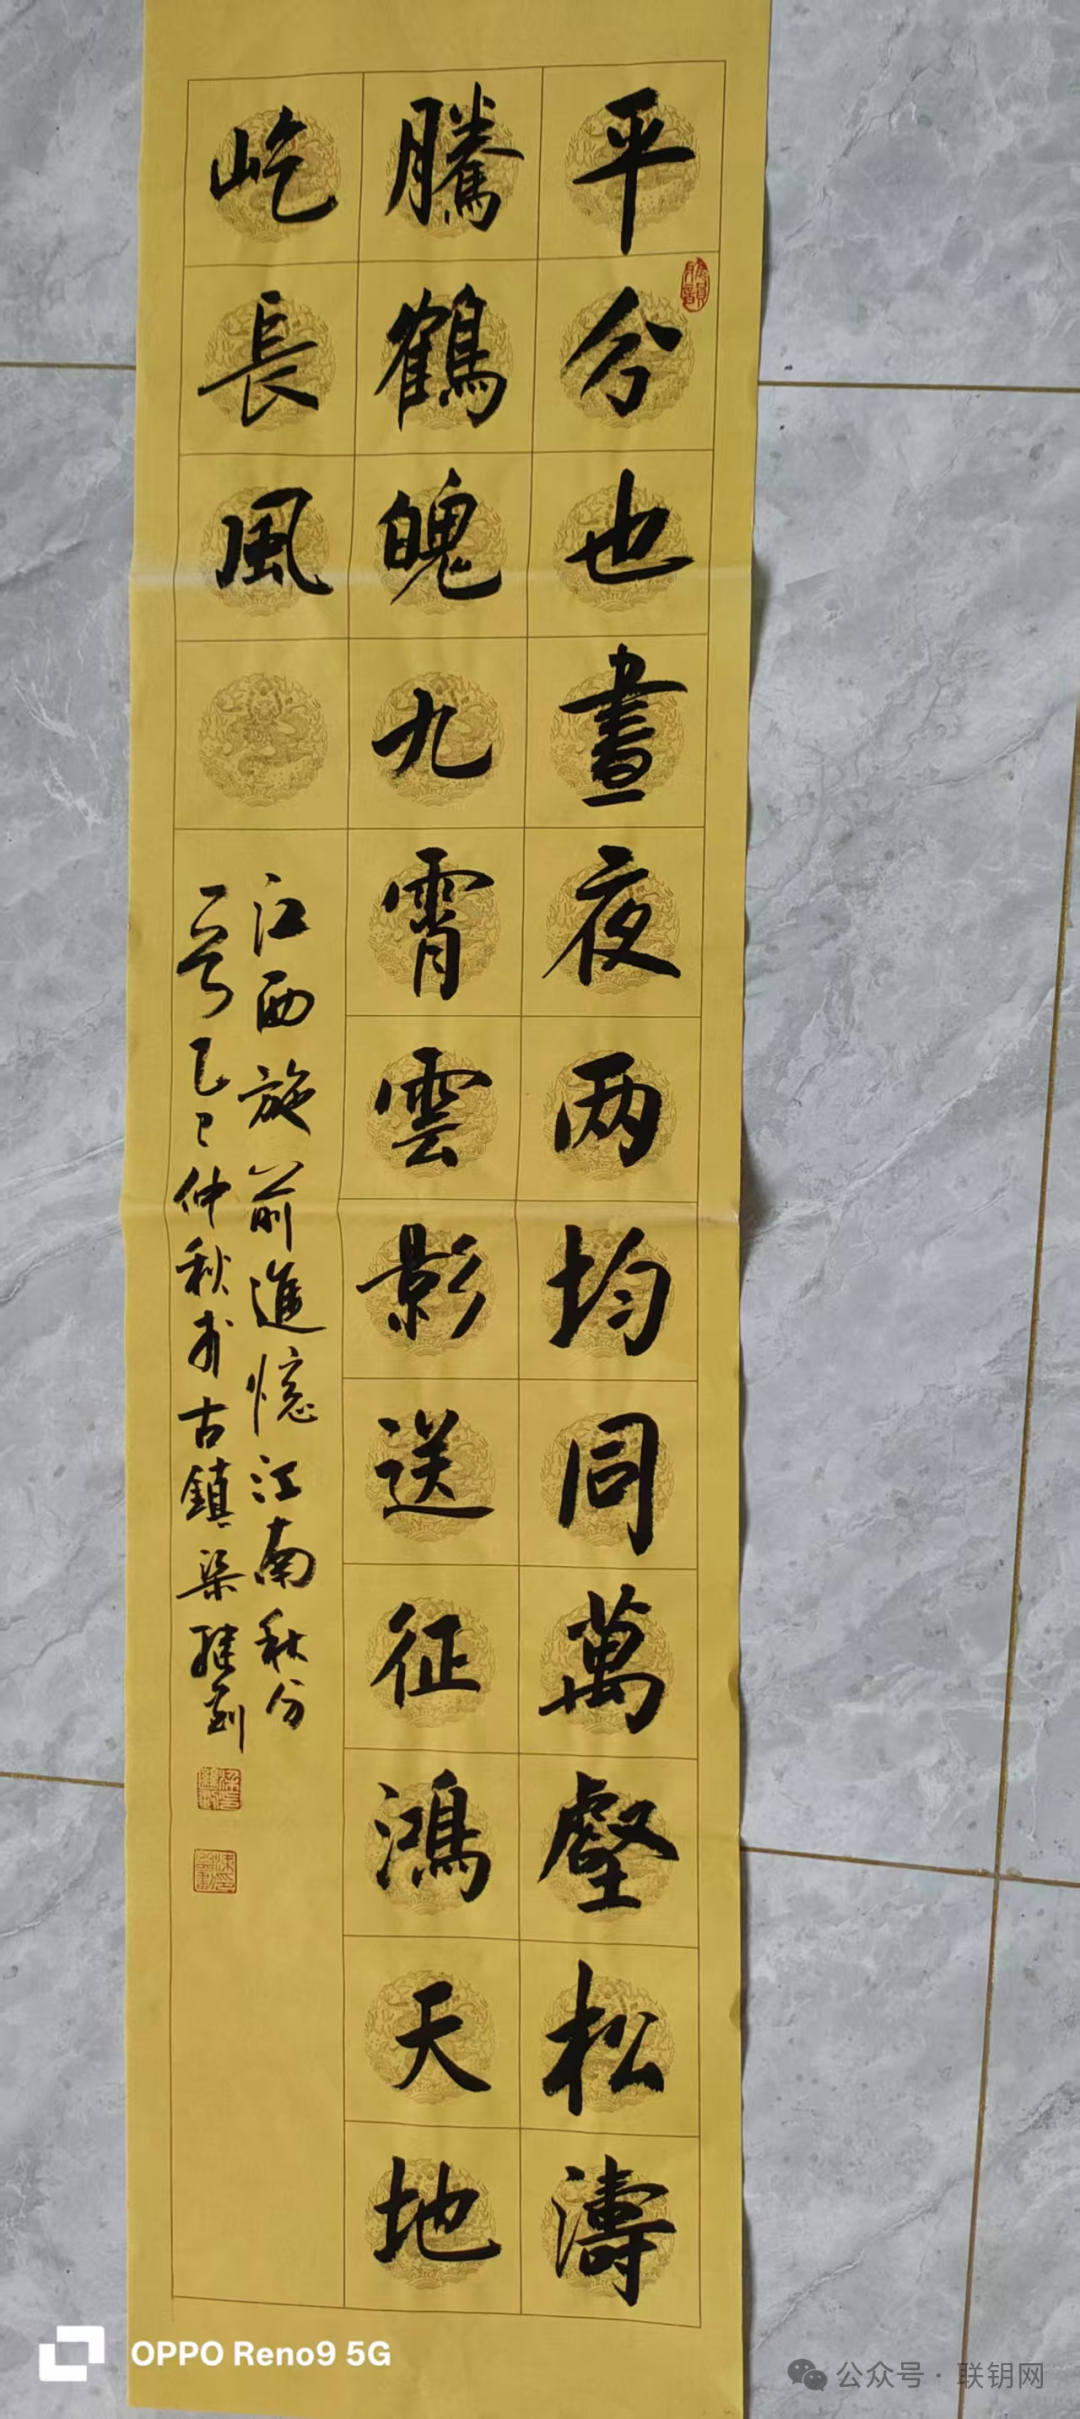 平分也晝夜两均同萬壑松濤
騰鶴魄九霄雲影送征鴻天地
屹長風
江西施前進憶江南秋分
一首乙巳仲秋於古鎮梁繼剑
OPPO Reno9 5G
公众号·联钥网